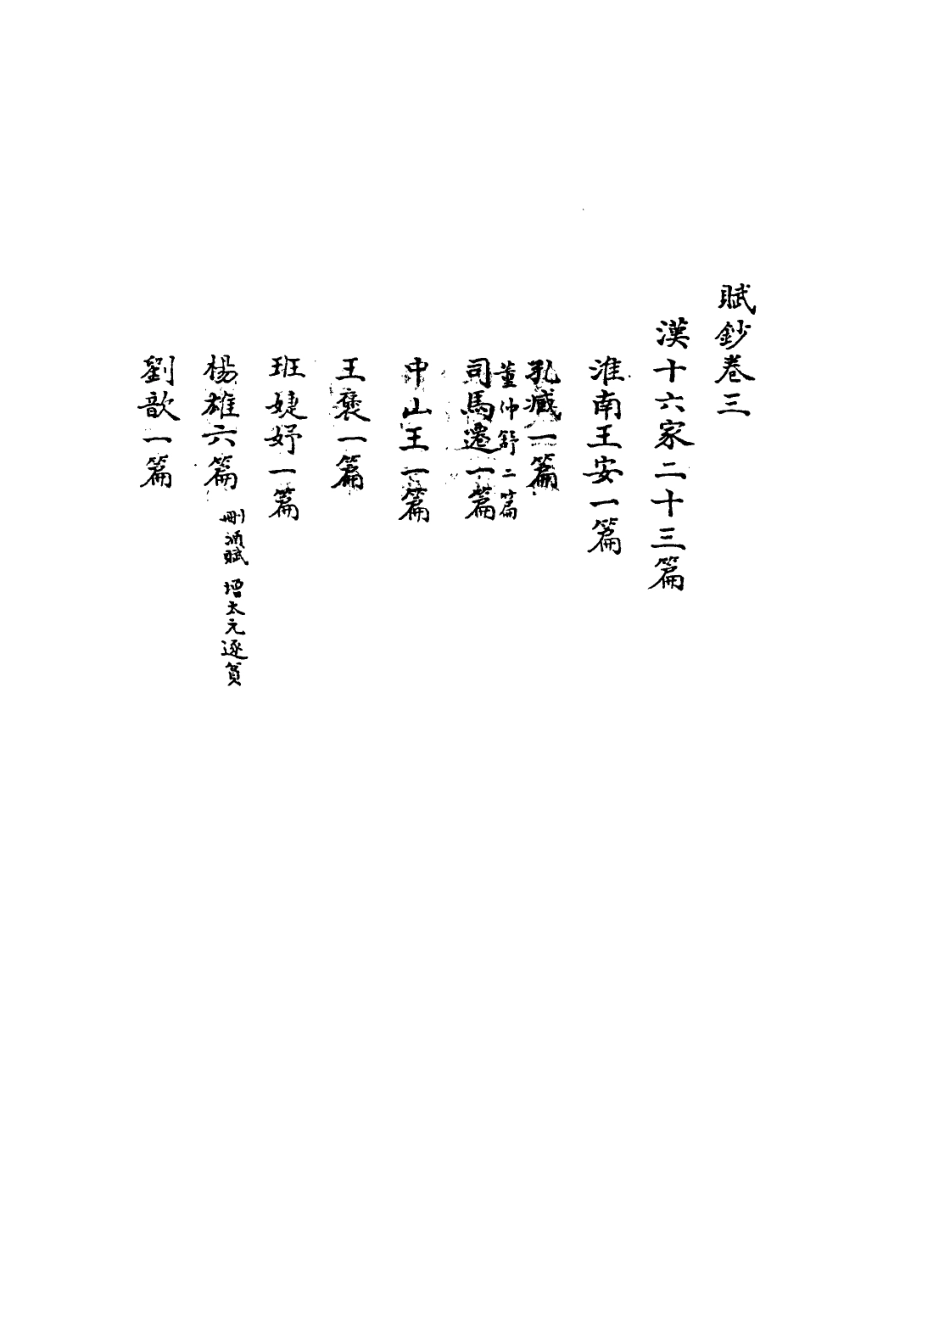 賦鈔卷三
漢十六家二十三篇
淮南王安一篇
孔臧一篇
董仲舒二篇
司馬遷一篇
中山王一篇
王襃一篇
班婕妤一篇
楊雄六篇 刪酒賦 增太元逐貧
劉歆一篇